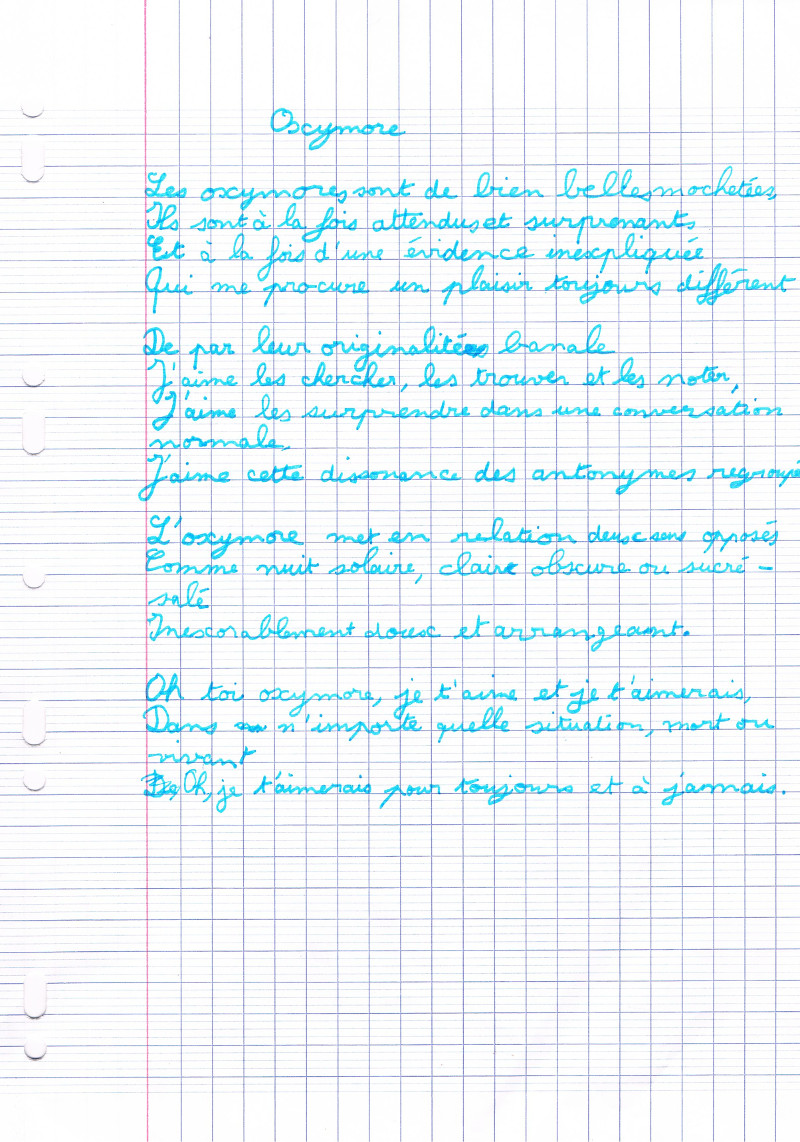 Oxymore
Les oxymores sont de bien belles mochetées,
Ils sont à la fois attendus et surprenants
Est à la fois d'une évidence inexpliquée
Qui me procure un plaisir toujours différent
De par leur originalitées banale
J'aime les chercher, les trouver et les noter,
J'aime les surprendre dans une conversation
normale,
J'aime cette dissonance des antonymes regroupé
L'oxymore met en relation deux sens opposés
Comme nuit solaire, claire obscure ou sucré -
salé
Inexorablement doux et arrangeant.
Oh toi oxymore, je t'aime et je t'aimerais,
Dans n'importe quelle situation, mort ou
vivant
Oh, je t'aimerais pour toujours et à jamais.